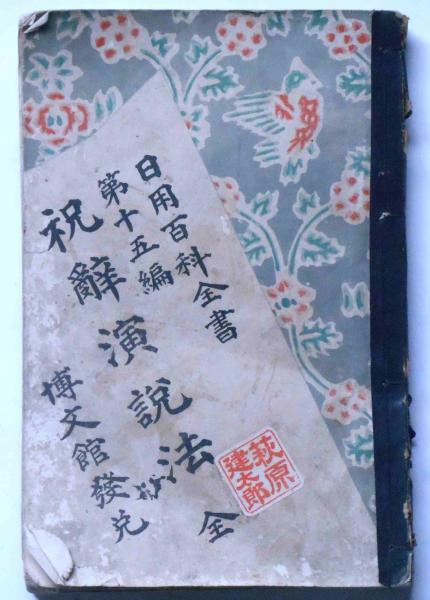 日用百科全書
第十五編
祝辭演説法 全
博文館發兌
萩原
建太郎